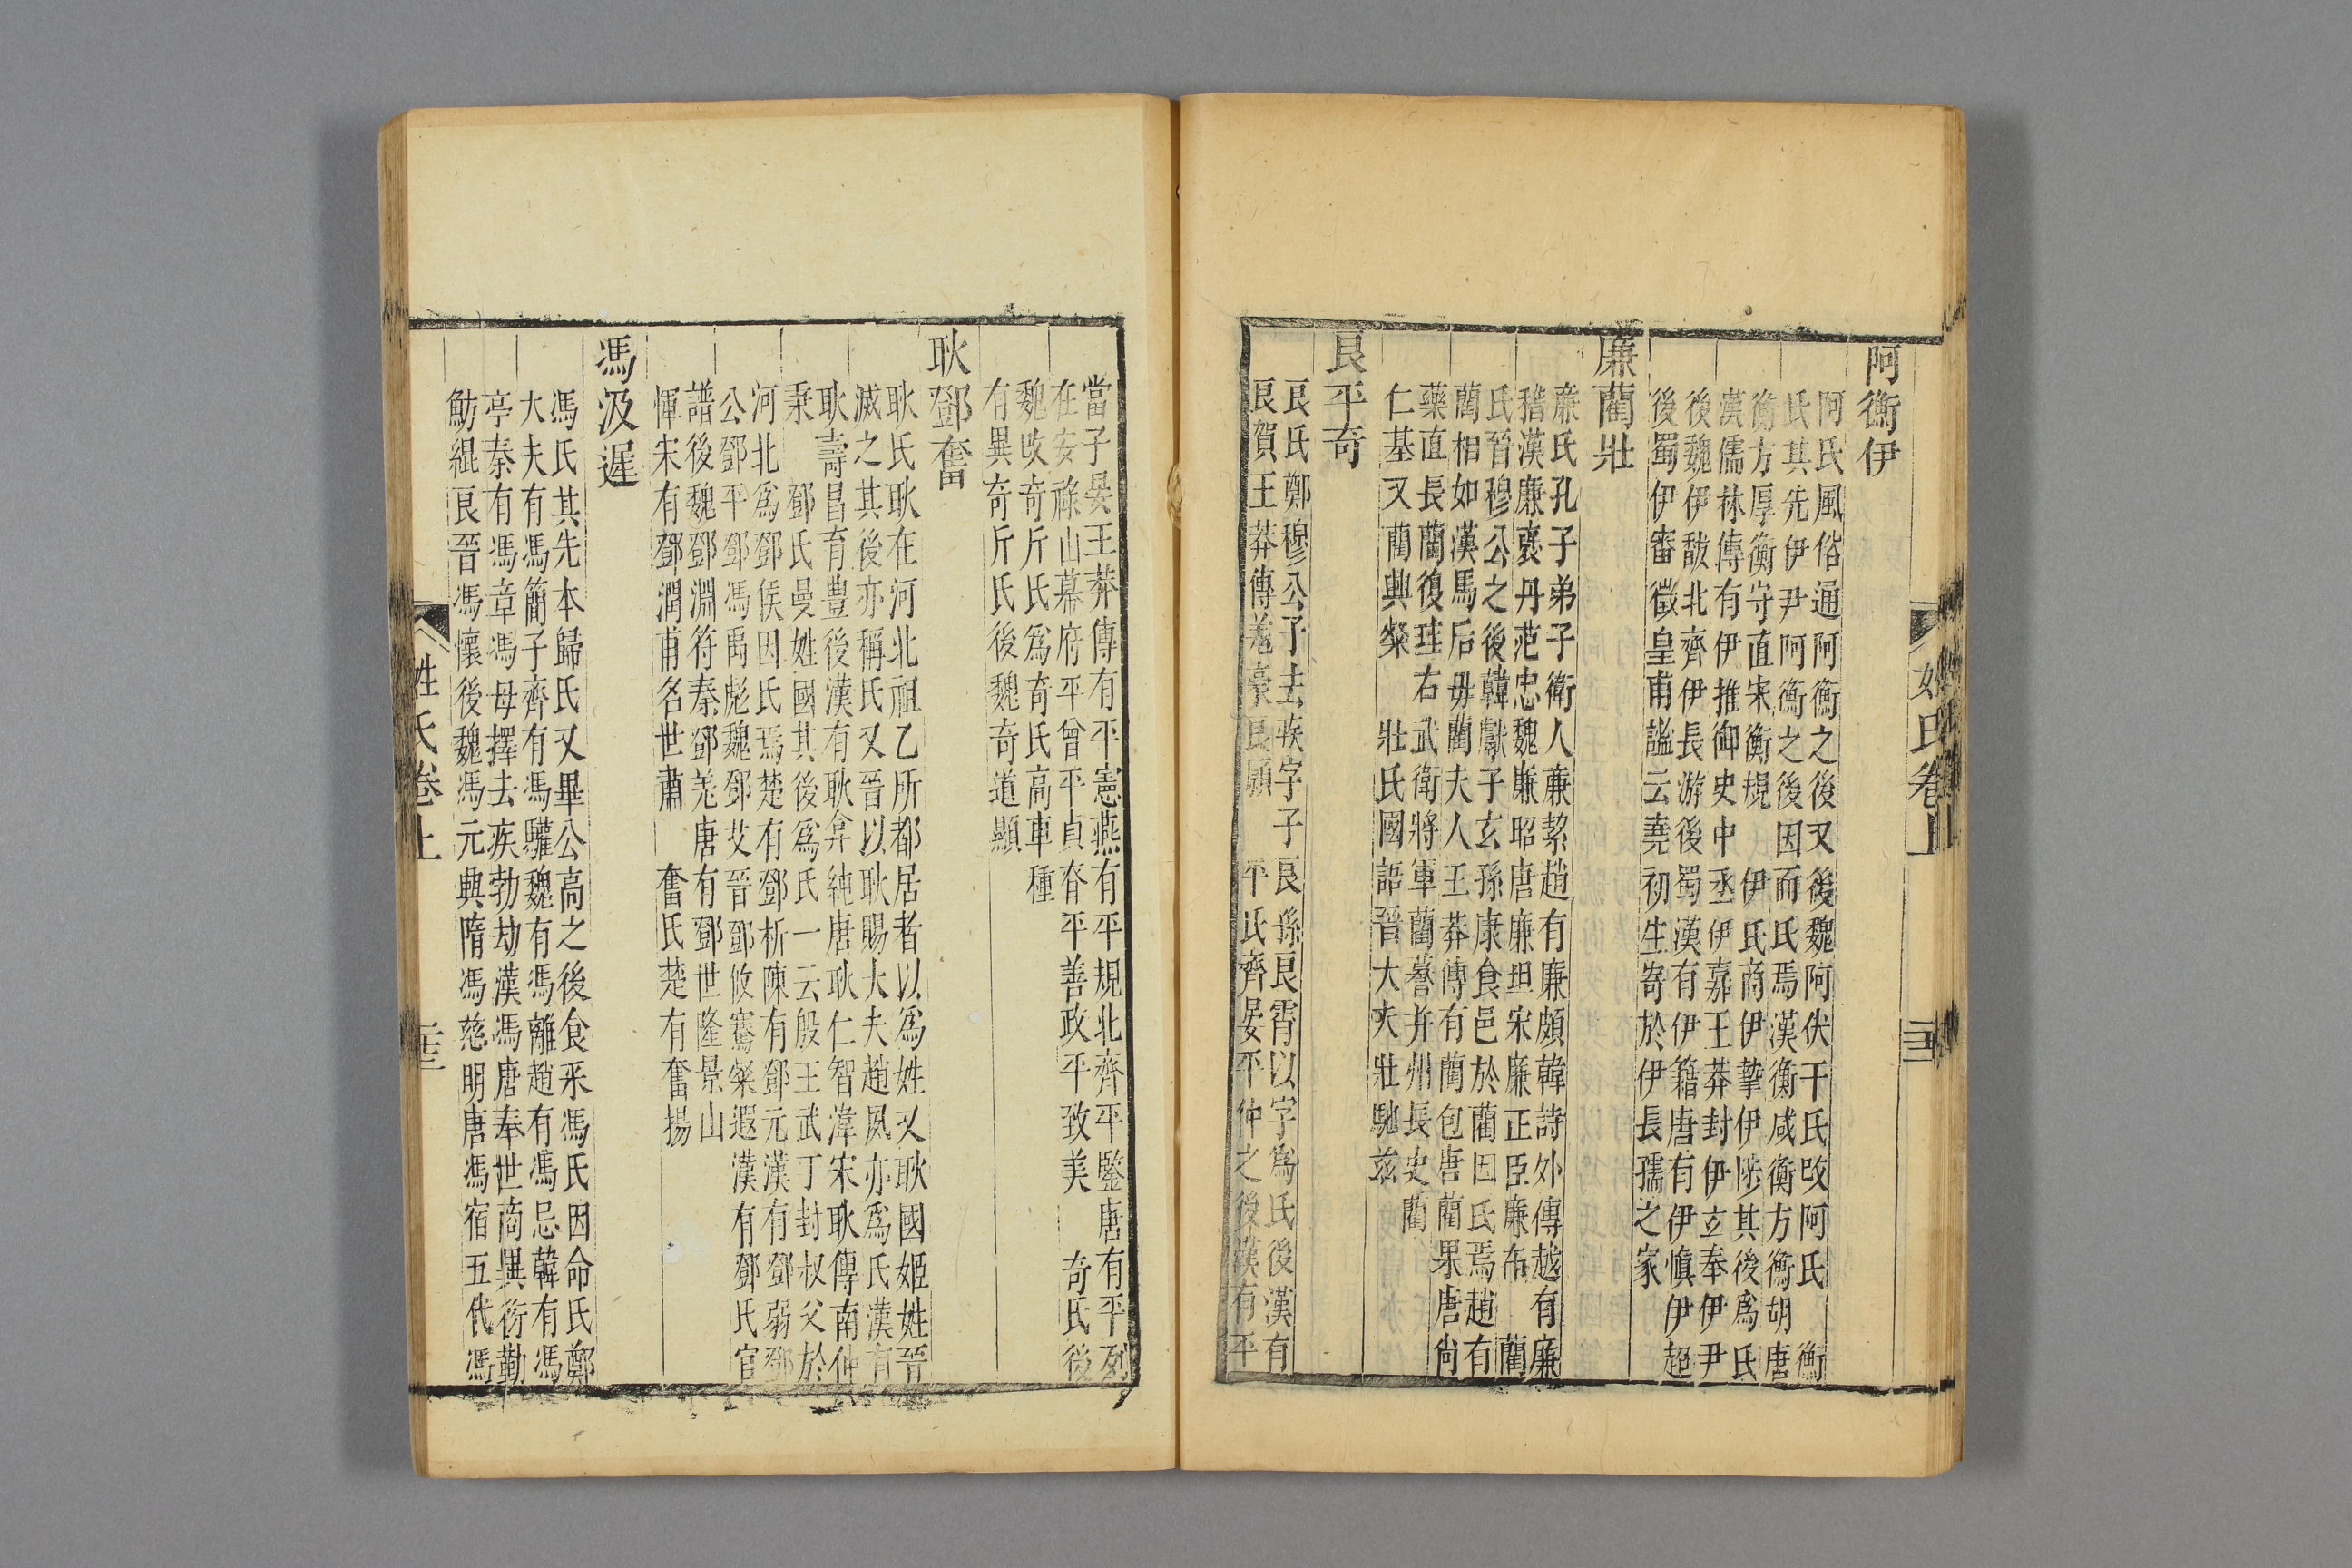 阿衡伊
阿氏風俗通阿衡之後又後魏阿伏干氏改阿氏　衡
氏其先伊尹阿衡之後因而氏焉漢衡咸衡方衡胡唐
衡方厚衡守直宋衡規　伊氏商伊摯伊陟其後爲氏
漢儒林傳有伊推御史中丞伊嘉王莽封伊立奉伊尹
後魏伊馛北齊伊長游後蜀漢有伊籍唐有伊愼伊超
後蜀伊審徵皇甫謐云堯初生寄於伊長孺之家
廉藺壯
廉氏孔子弟子衛人廉絜趙有廉頗韓詩外傳越有廉
稽漢廉襃丹范忠魏廉昭唐廉坦宋廉正臣廉布　藺
氏晉穆公之後韓獻子玄孫康食邑於藺因氏焉趙有
藺相如漢馬后毋藺夫人王莽傳有藺包唐藺果唐尙
藥直長藺復珪右武衛將軍藺謩幷州長史藺
仁基又藺興粲　壯氏國語晉大夫壯馳茲
良平奇
良氏鄭穆公子去疾字子良孫良霄以字爲氏後漢有
良賀王莽傳羌豪良願　平氏齊晏平仲之後漢有平
姓氏卷上
當子晏王莽傳有平憲燕有平規北齊平鑒唐有平冽
在安祿山幕府平曾平貞眘平善政平致美　奇氏後
魏改奇斤氏爲奇氏高車種
有異奇斤氏後魏奇道顯
耿鄧奮
耿氏耿在河北祖乙所都居者以爲姓又耿國姬姓晉
滅之其後亦稱氏又晉以耿賜大夫趙夙亦爲氏漢有
耿壽昌育豊後漢有耿弇純唐耿仁智湋宋耿傳南仲
秉　鄧氏曼姓國其後爲氏一云殷王武丁封叔父於
河北爲鄧侯因氏焉楚有鄧析陳有鄧元漢有鄧弱鄧
公鄧平鄧馮禹彪魏鄧艾晉鄧攸騫粲遐漢有鄧氏官
譜後魏鄧淵符秦鄧羌唐有鄧世隆景山
惲宋有鄧潤甫名世肅　奮氏楚有奮揚
馮汲遲
馮氏其先本歸氏又畢公高之後食采馮氏因命氏鄭
大夫有馮簡子齊有馮驩魏有馮離趙有馮忌韓有馮
亭秦有馮章馮毋擇去疾勃劫漢馮唐奉世商異衍勤
魴緄良晉馮懷後魏馮元興隋馮慈明唐馮宿五代馮
姓氏卷上